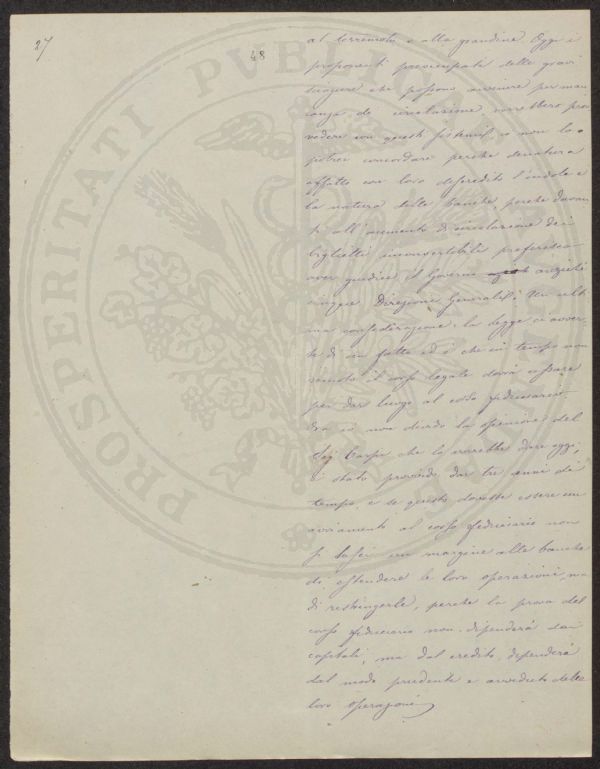 27
48
al terremoto e alla grandine. Oggi i
proponenti preoccupati delle gravi
sciagure che possono avvenire per man
canza di circolazione vorrebbero prov
vedere con questi sistemi, io non lo
potrei concordare perchè denatura
affatto con loro discredito l'indole e
la natura delle Banche, perchè davan
ti all'aumento di circolazione dei
biglietti inconvertibili preferisco
aver giudice il Governo anzichè
cinque Direzioni Generali. Un'ulti
ma considerazione: la legge ci avver
te di un fatto ed è che in tempo non
remoto il corso legale dovrà cessare
per dar luogo al corso fiduciario.
Ora io non divido la opinione del
che lo vorrebbe dare oggi,
è stato provvido dar tre anni di
tempo, e se questo dovesse essere un
avviamento al corso fiduciario non
si lasci un margine alle banche
di estendere le loro operazioni, ma
di restringerle, perchè la prova del
corso fiduciario non dipenderà dai
capitali, ma dal credito, dipenderà
dal modo prudente e avveduto delle
loro operazioni
PROSPERITATI PVBLICAE